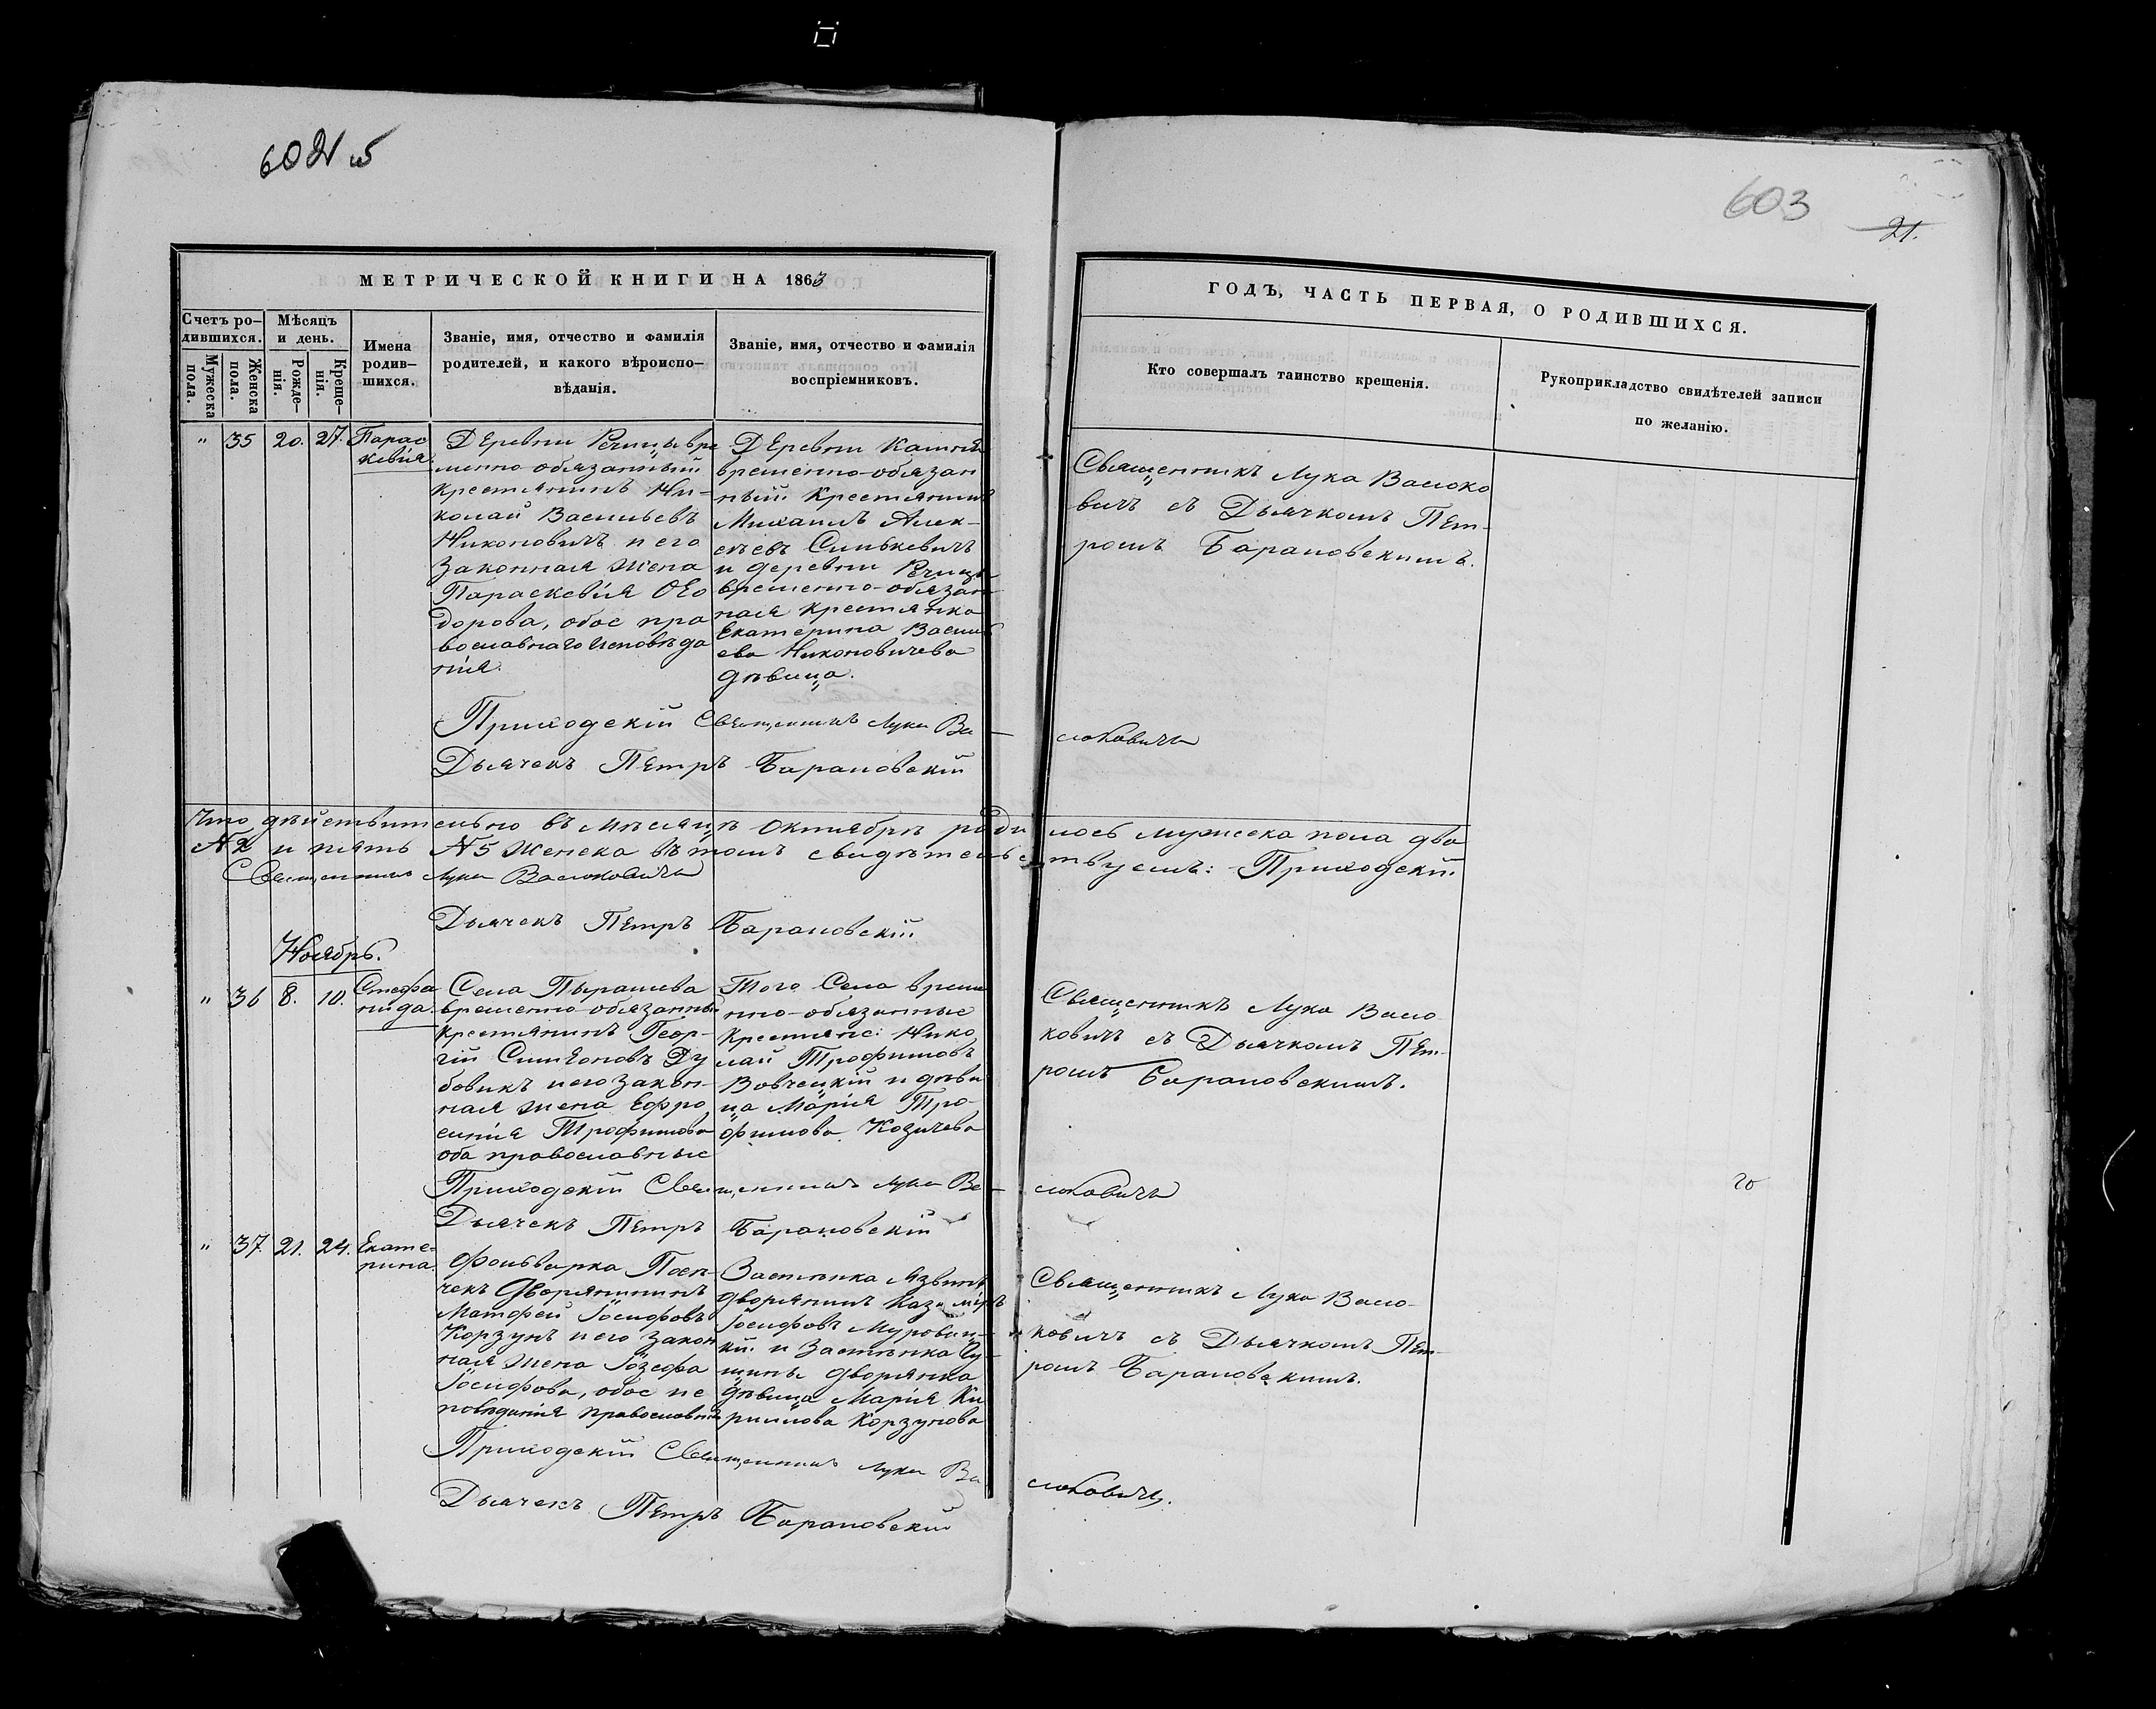 602 об
603
21.
МЕТРИЧЕСКОЙ КНИГИ НА 1863
ГОДЪ, ЧАСТЬ ПЕРВАЯ, О РОДИВШИХСЯ.
Счетъ ро-
дившихся.
Мужеска
пола.
Женска
пола.
Мѣсяцъ
и день.
Рожде-
нія.
Креще-
нія.
Имена
родив-
шихся.
Званіе, имя, отчество и фамилія
родителей, и какого вѣроиспо-
вѣданія.
Званіе, имя, отчество и фамилія
воспріемниковъ.
Кто совершалъ таинство крещенія.
Рукоприкладство свидѣтелей записи
по желанію.
" 35 20. 27. Парас
кевія
Деревни Речицы вре
менно-обязанный
крестьянинъ Ни-
колай Васильевъ
Никоновичъ и его
законная жена
Параскевія Ѳео
дорова, обое пра
вославнаго исповѣда
нія.
Деревни
временно-обязан
ный крестьянинъ
Михаилъ Алек-
сѣевъ Синькевичъ
и деревни Речицы
временно-обязан
ная крестьянка
Екатерина Василь
ева Никоновичева
дѣвица.
Священникъ Лука Васюко
вичъ съ Дьячкомъ Пет-
ромъ Барановскимъ.
Приходскій Священникъ Лука Ва-
сюковичъ
Дьячекъ Петръ Барановскій
Что дѣйствительно въ мѣсяцѣ Октябрѣ родилось мужеска пола два
№ 2 и пять № 5 женска въ томъ свидѣтельствуемъ: Приходскій
Священникъ Лука Васюковичъ
Дьячекъ Петръ Барановскій.
Ноябрь.
" 36 8. 10. Стефа
нида.
Села Пырашева
временно-обязанный
крестьянинъ Геор-
гій Симеоновъ Ду
бовикъ и его закон-
ная жена Ефро
синія Трофимова
оба православные
Того Села време
нно-обязанные
крестьяне: Нико
лай Трофимовъ
Вовчецкій и дѣви
ца Марія Тро-
фимова Козичева
Священникъ Лука Васю-
ковичъ съ Дьячкомъ Пет-
ромъ Барановскимъ.
Приходскій Священникъ Лука Ва-
сюковичъ
20
Дьячекъ Петръ Барановскій
" 37. 21. 24. Екате-
рина.
Фольварка Посѣ-
чекъ Дворянинъ
Матфей Іосифовъ
Корзунъ и его закон
ная жена Іозефа
Іосифова, обое ис
повѣданія православнаго
Застѣнка
дворянинъ Казиміръ
Іосифовъ
и Застѣнка
дворянка
дѣвица Марія Ки
риллова Корзунова
Священникъ Лука Васю-
ковичъ съ Дьячкомъ Пет-
ромъ Барановскимъ.
Приходскій Священникъ Лука Ва
сюковичъ.
Дьячекъ Петръ Барановскій